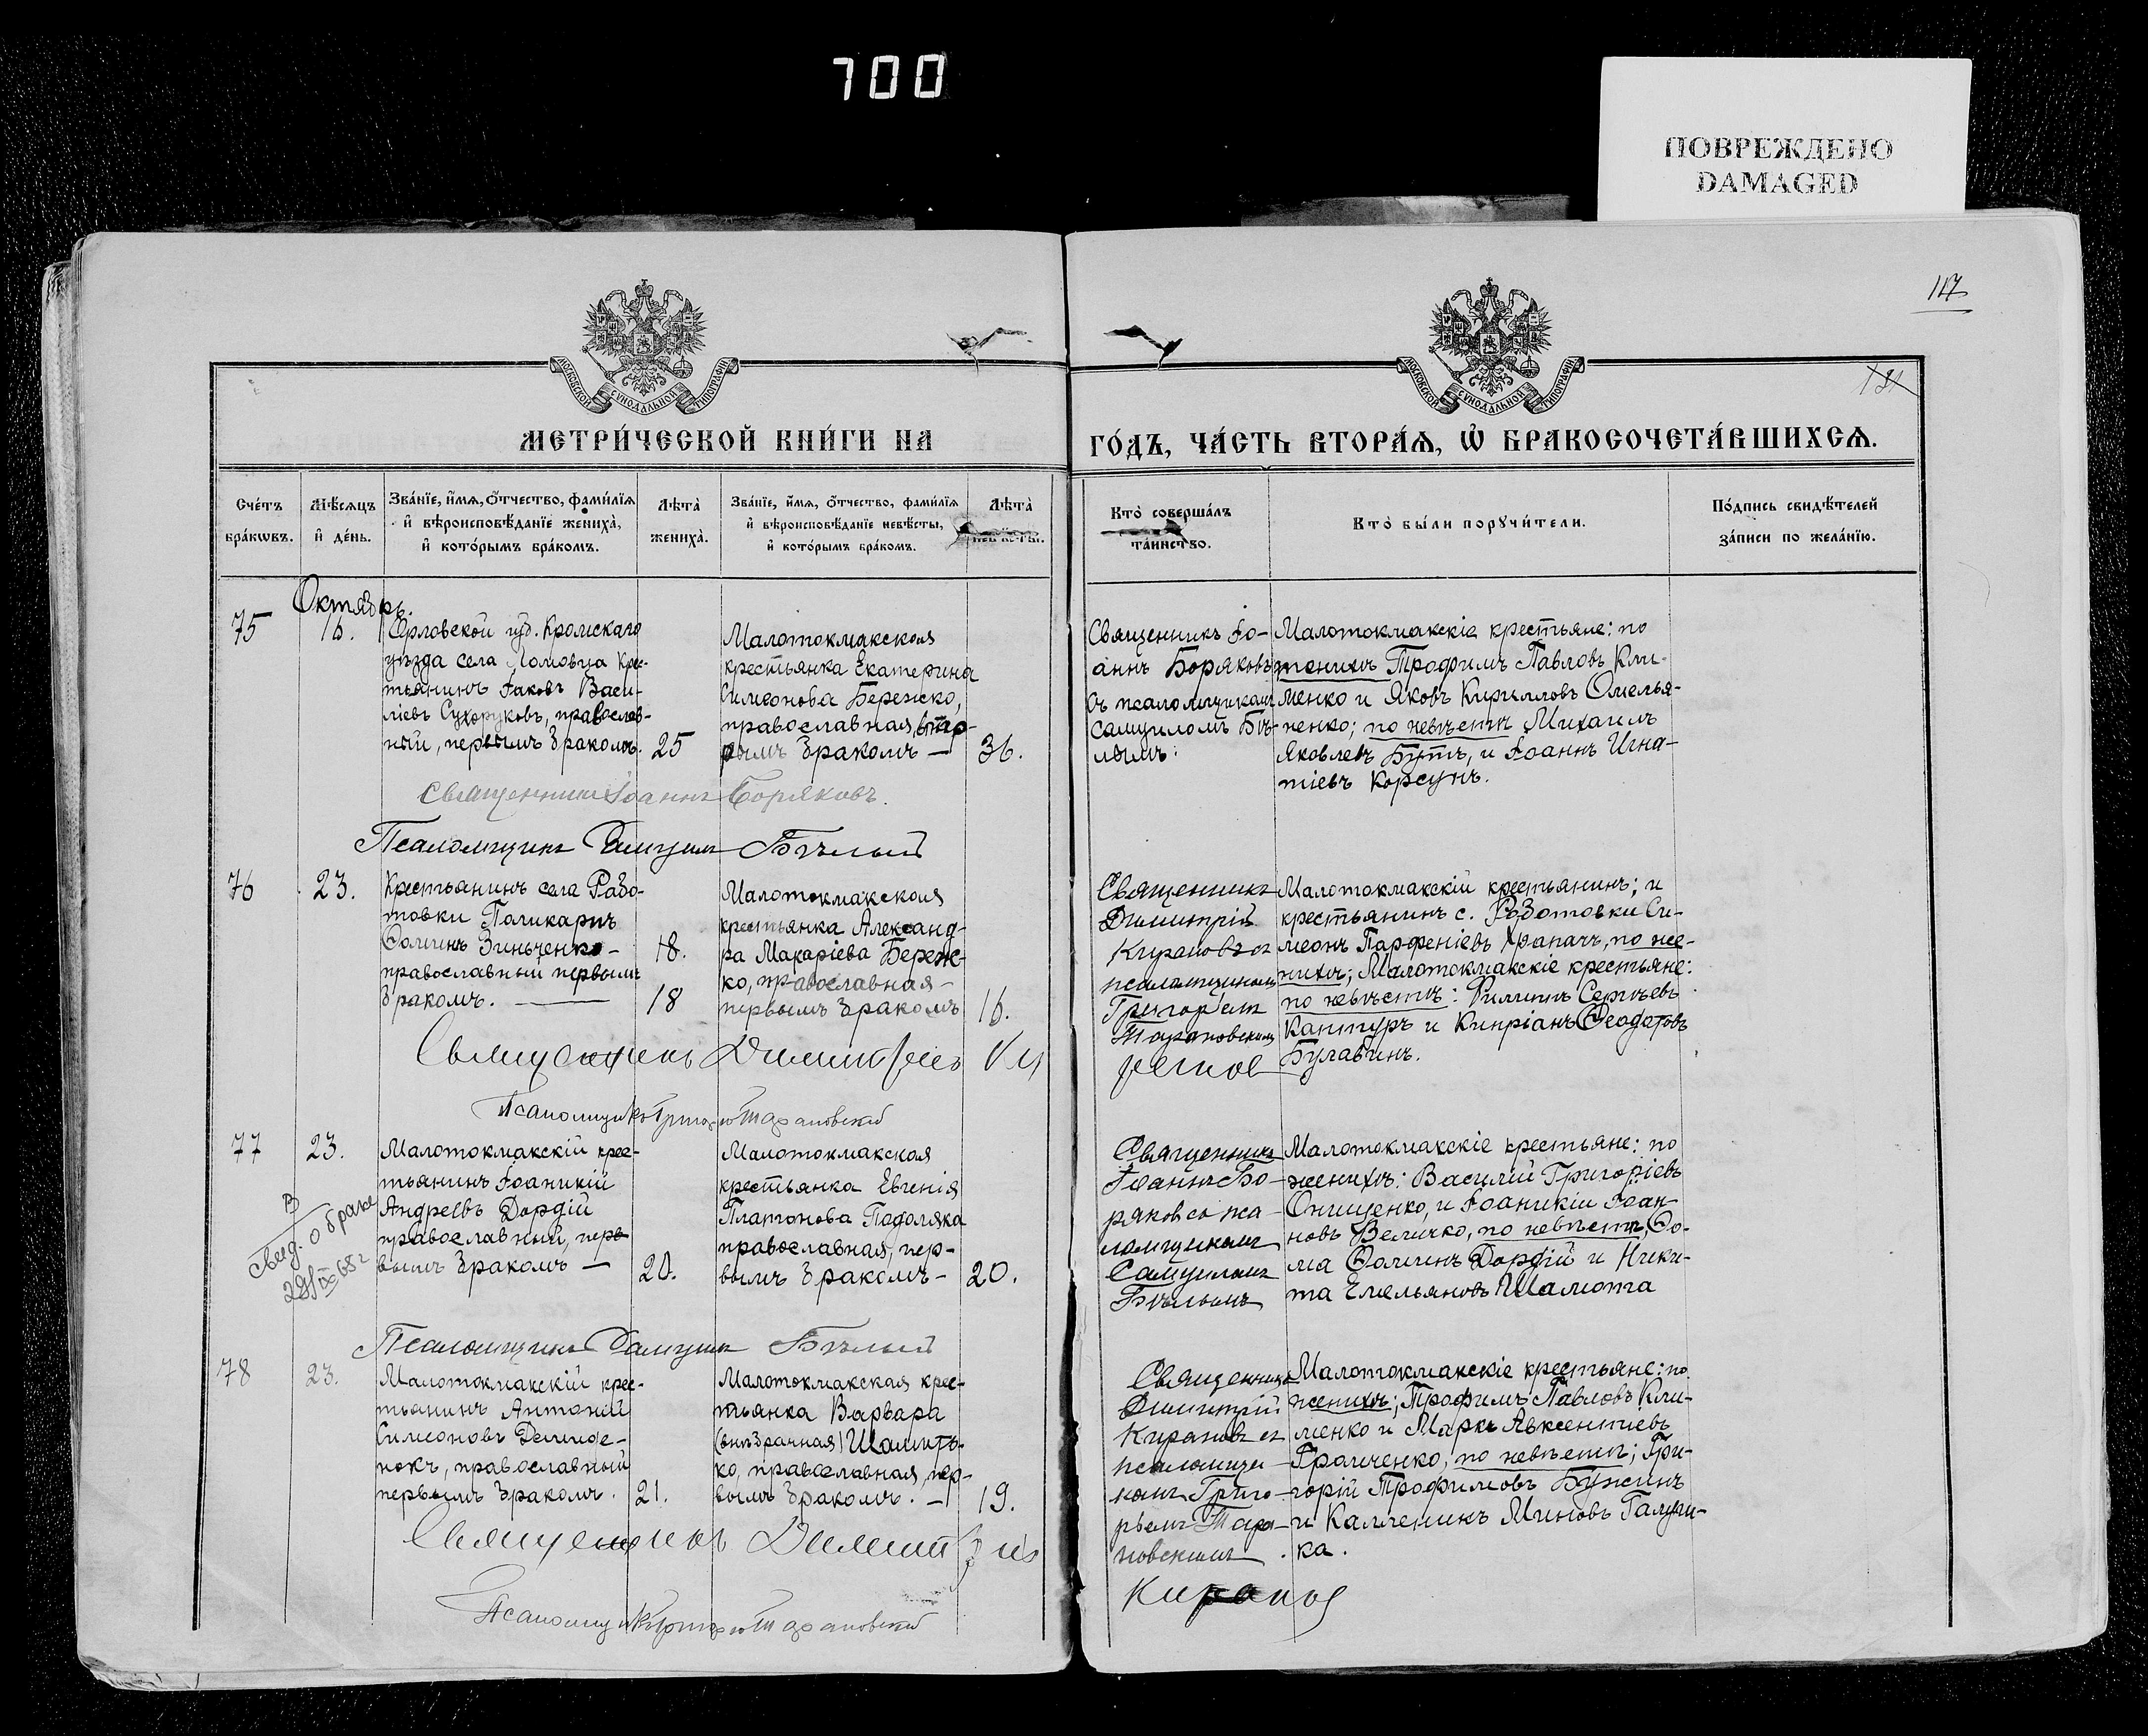 700
ПОВРЕЖДЕНО
DAMAGED
117
131
МОСКОВСКОЙ СѴНОДАЛЬНОЙ ТИПОГРАФІИ
МОСКОВСКОЙ СѴНОДАЛЬНОЙ ТИПОГРАФІИ
МЕТРИ́ЧЕСКОЙ КНИ́ГИ НА
ГО́ДЪ, ЧА́СТЬ ВТОРА́Ѧ, Ѡ БРАКОСОЧЕТА́ВШИХСѦ.
Сче́тъ бра́кѡвъ.
Мѣ́сяцъ и де́нь.
Зва́нїе, и́мѧ, о́тчество, фами́лїѧ
и вѣроисповѣ́данїе жениха̀,
и кото́рымъ бра́комъ.
Лѣта̀ жениха̀.
Зва́нїе, и́мѧ, о́тчество, фами́лїѧ
и вѣроисповѣ́данїе невѣ́сты,
и кото́рымъ бра́комъ.
Лѣта̀ невѣ́сты.
Кто̀ соверша́лъ
та́инство.
Кто̀ бы́ли порꙋчи́тели.
По́дпись свидѣ́телей
за́писи по жела́нїю.
Октябрь.
75
16.
Орловской губ. Кромскаго
уѣзда села Ломовца крес-
тьянинъ Іаковъ Васи-
ліевъ Сухоруковъ, православ-
ный, первымъ бракомъ.
25
Малотокмакская
крестьянка Екатерина
Симеонова Бережко,
православная, вто-
рымъ бракомъ —
36.
Священникъ Іо-
аннъ Боряковъ
съ псаломщикомъ
Самуиломъ Бѣ-
лымъ.
Малотокмакскіе крестьяне: по
женихѣ Трофимъ Павловъ Кли-
менко и Яковъ Кирилловъ Омелья-
ненко; по невѣстѣ Михаилъ
Яковлевъ Бутъ, и Іоаннъ Игна-
тіевъ Корсунъ.
Священникъ Іоаннъ Боряковъ.
Псаломщикъ Самуилъ Бѣлый
76
23.
Крестьянинъ села Рабо-
товки Поликарпъ
Ѳоминъ Зинченко —
православный первымъ
бракомъ. —
18.
18
Малотокмакская
крестьянка Александ-
ра Макаріева Береж-
ко, православная —
первымъ бракомъ
16.
Священникъ
Димитрій
Кирановъ съ
псаломщикомъ
Григоріемъ
Тарановскимъ
Малотокмакскій крестьянинъ; и
крестьянинъ с. Роботовки Си-
меонъ Парфеніевъ Храпачъ, по же-
нихѣ; Малотокмакскіе крестьяне:
по невѣстѣ: Филиппъ Сергѣевъ
Кантуръ и Кипріанъ Ѳеодотовъ
Булавинъ.
Священникъ Димитрій Ки
рановъ
Псаломщикъ Григорій Тарановскій
77
23.
Малотокмакскій крес-
тьянинъ Іоаникій
Андреевъ Дордій
православный, пер-
вымъ бракомъ —
20.
Малотокмакская
крестьянка Евгенія
Платонова Подоляка
православная, пер-
вымъ бракомъ —
20.
Священникъ
Іоаннъ Бо-
ряковъ со пса-
ломщикомъ
Самуиломъ
Бѣлымъ
Малотокмакскіе крестьяне: по
женихѣ: Василій Григоріевъ
Онищенко, и Іоаникій Іоан-
новъ Величко, по невѣстѣ, Ѳо-
ма Ѳоминъ Дордій и Ники-
та Емельяновъ Шамота
свид. о браке
Псаломщикъ Самуилъ Бѣлый
78
23.
Малотокмакскій крес-
тьянинъ Антоній
Симеоновъ Демиде-
нокъ, православный
первымъ бракомъ.
21.
Малотокмакская крес-
тьянка Варвара
(внѣбрачная) Шамить-
ко, православная, пер-
вымъ бракомъ. —
19.
Священникъ
Димитрій
Кирановъ съ
псаломщи-
комъ Григо-
рьемъ Тара-
новскимъ
Малотокмакскіе крестьяне: по
женихѣ; Трофимъ Павловъ Кли-
менко и Маркъ Авксентіевъ
Гранченко, по невѣстѣ; Гри-
горій Трофимовъ Бужинъ
и Каленикъ Миновъ Галуш-
ка.
Священникъ Димитрій
Кирановъ
Псаломщикъ Григорій Тарановскій